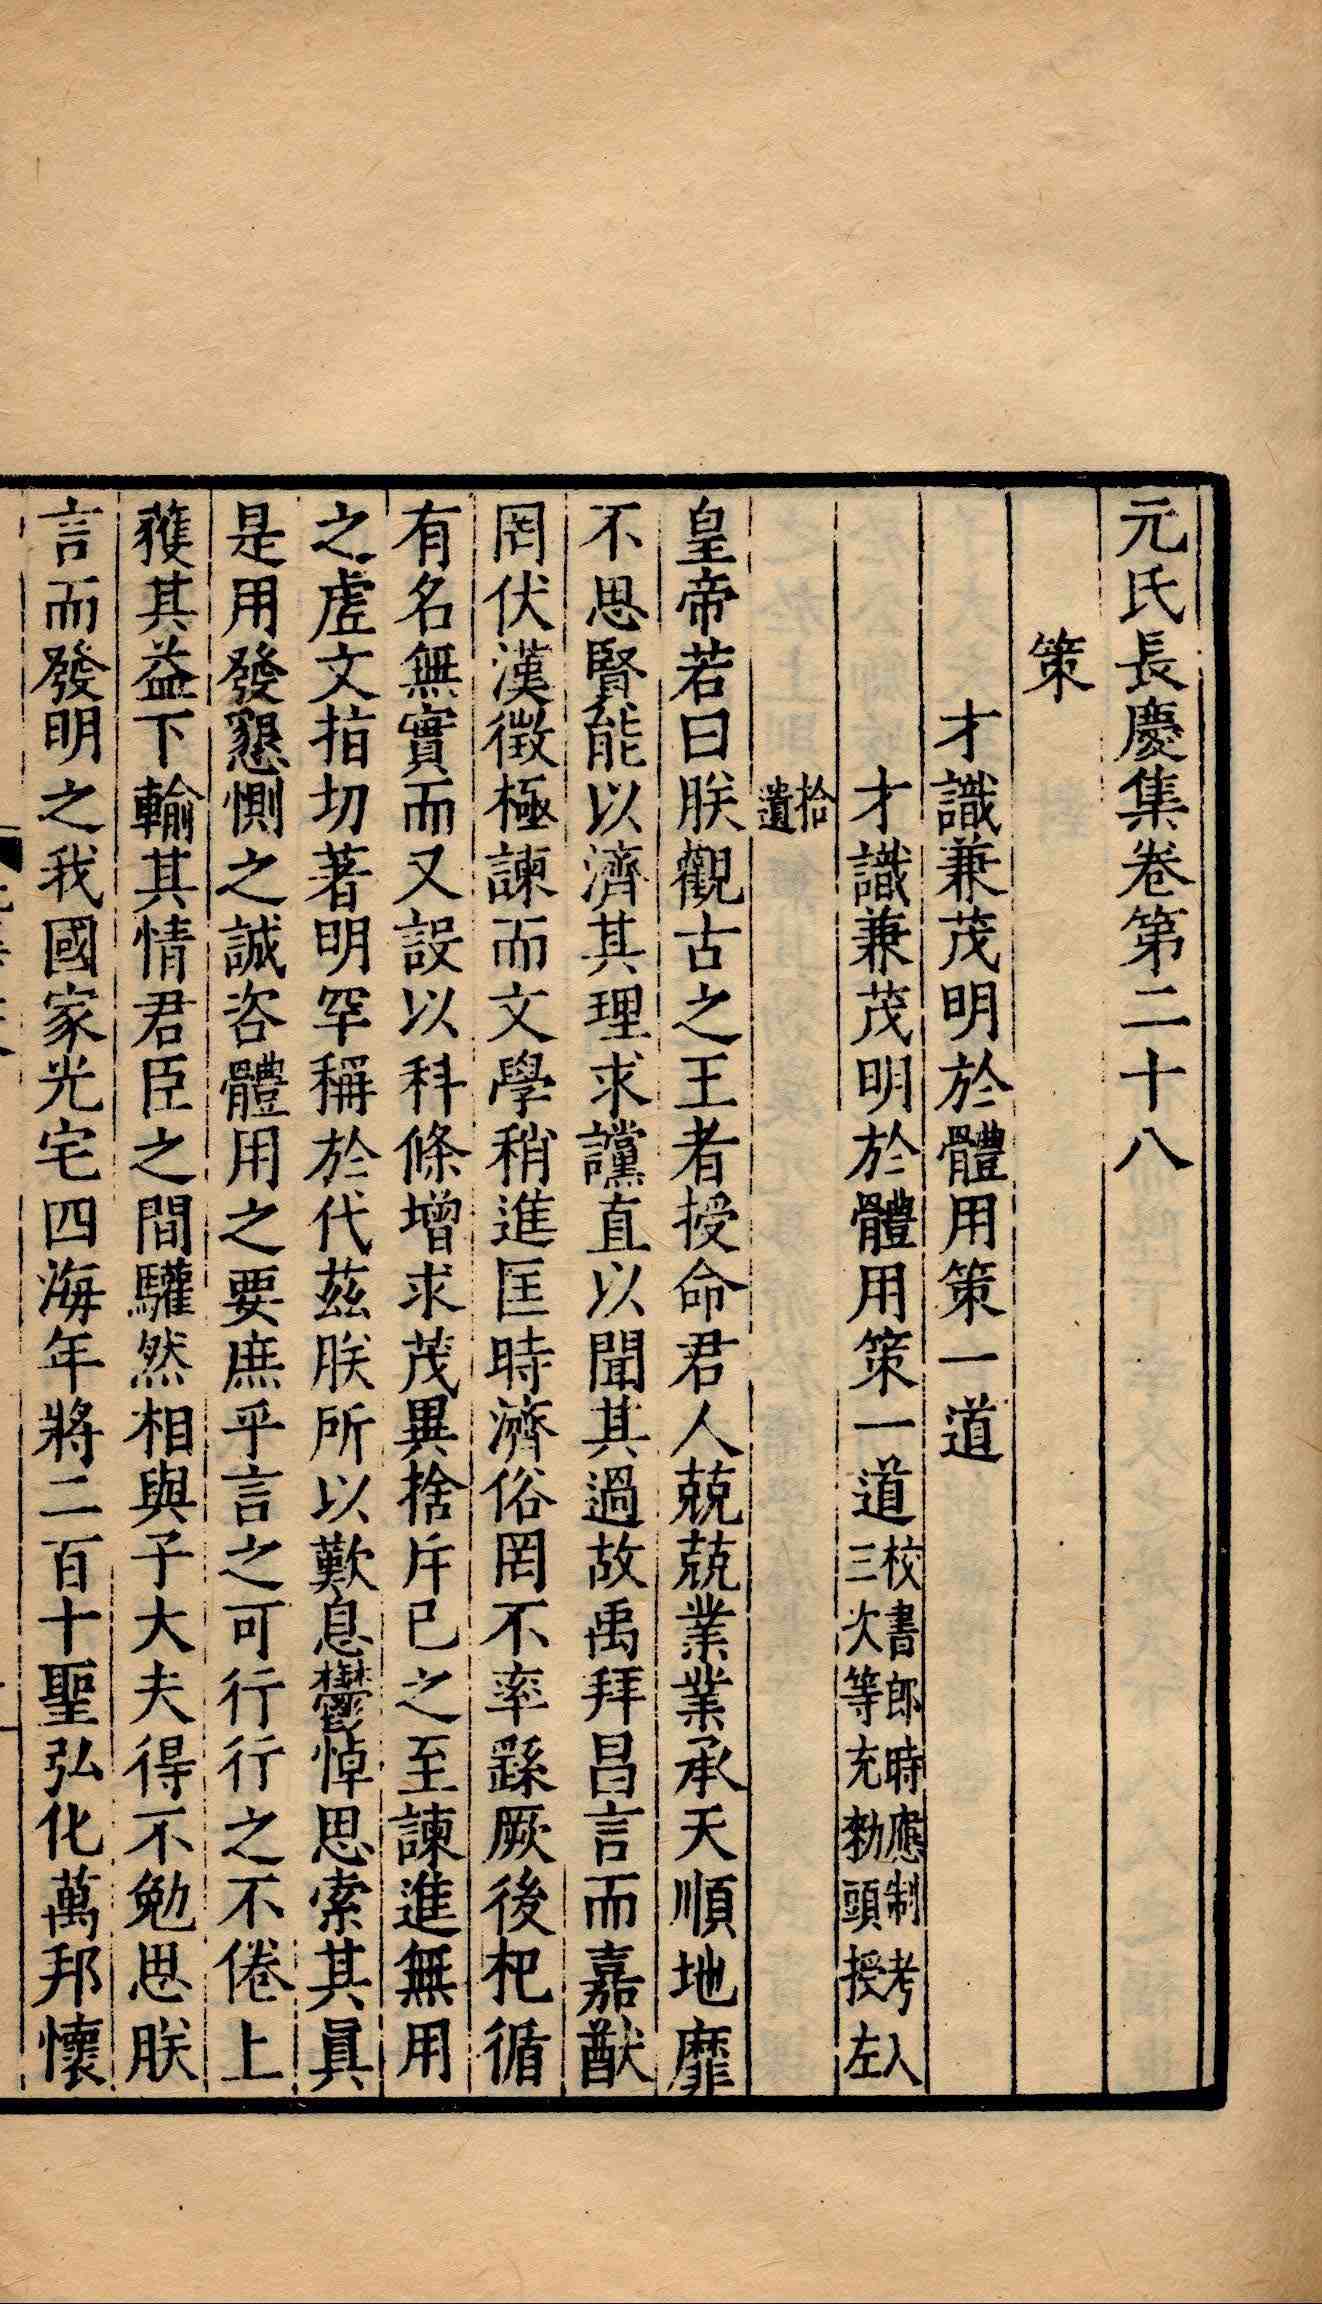 元氏長慶集卷第二十八
策
才識兼茂明於體用策一道
才識兼茂明於體用策一道校書郎時應制考入三次等充勑頭授左
拾遺
皇帝若曰朕觀古之王者授命君人兢兢業業承天順地靡
不思賢能以濟其理求讜直以聞其過故禹拜昌言而嘉猷
罔伏漢徵極諫而文學稍進匡時濟俗罔不率繇厥後杞循
有名無實而又設以科條增求茂異捨斥已之至諫進無用
之虛文指切著明罕稱於代茲朕所以歎息鬱悼思索其眞
是用發懇惻之誠咨體用之要庶乎言之可行行之不倦上
獲其益下輸其情君臣之間驩然相與子大夫得不勉思朕
言而發明之我國家光宅四海年將二百十聖弘化萬邦懷